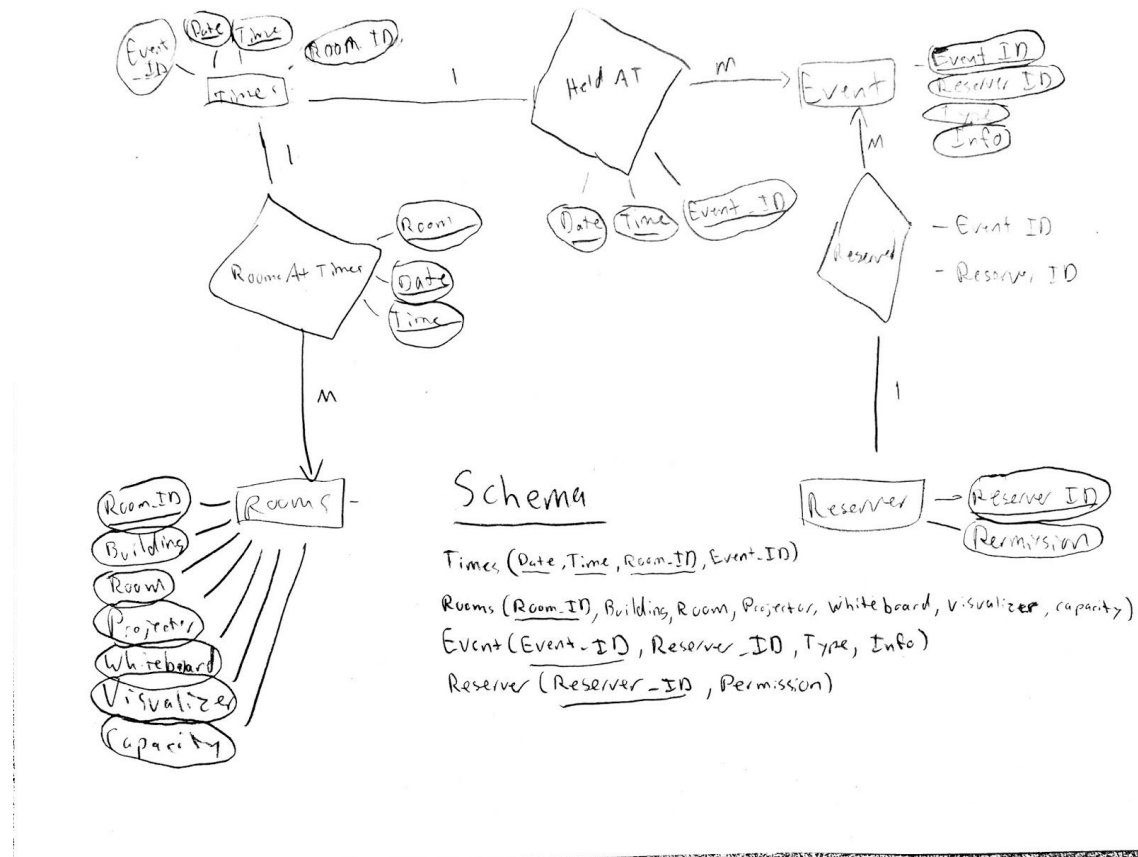 Event
_ID
Date
Time
Room ID
Times
1
Held AT
M
Event
Event ID
Reserver ID
Type
Info
1
M
Date
Time
Event_ID
Room
Date
Time
Rooms At Times
Reserved
- Event ID
- Reserver ID
M
1
Room_ID
Building
Room
Projector
Whiteboard
Visualizer
Capacity
Rooms
Schema
Reserver
Reserver ID
Permission
Times (Date, Time, Room_ID, Event_ID)
Rooms (Room_ID, Building, Room, Projector, Whiteboard, Visualizer, capacity)
Event (Event_ID, Reserver_ID, Type, Info)
Reserver (Reserver_ID, Permission)